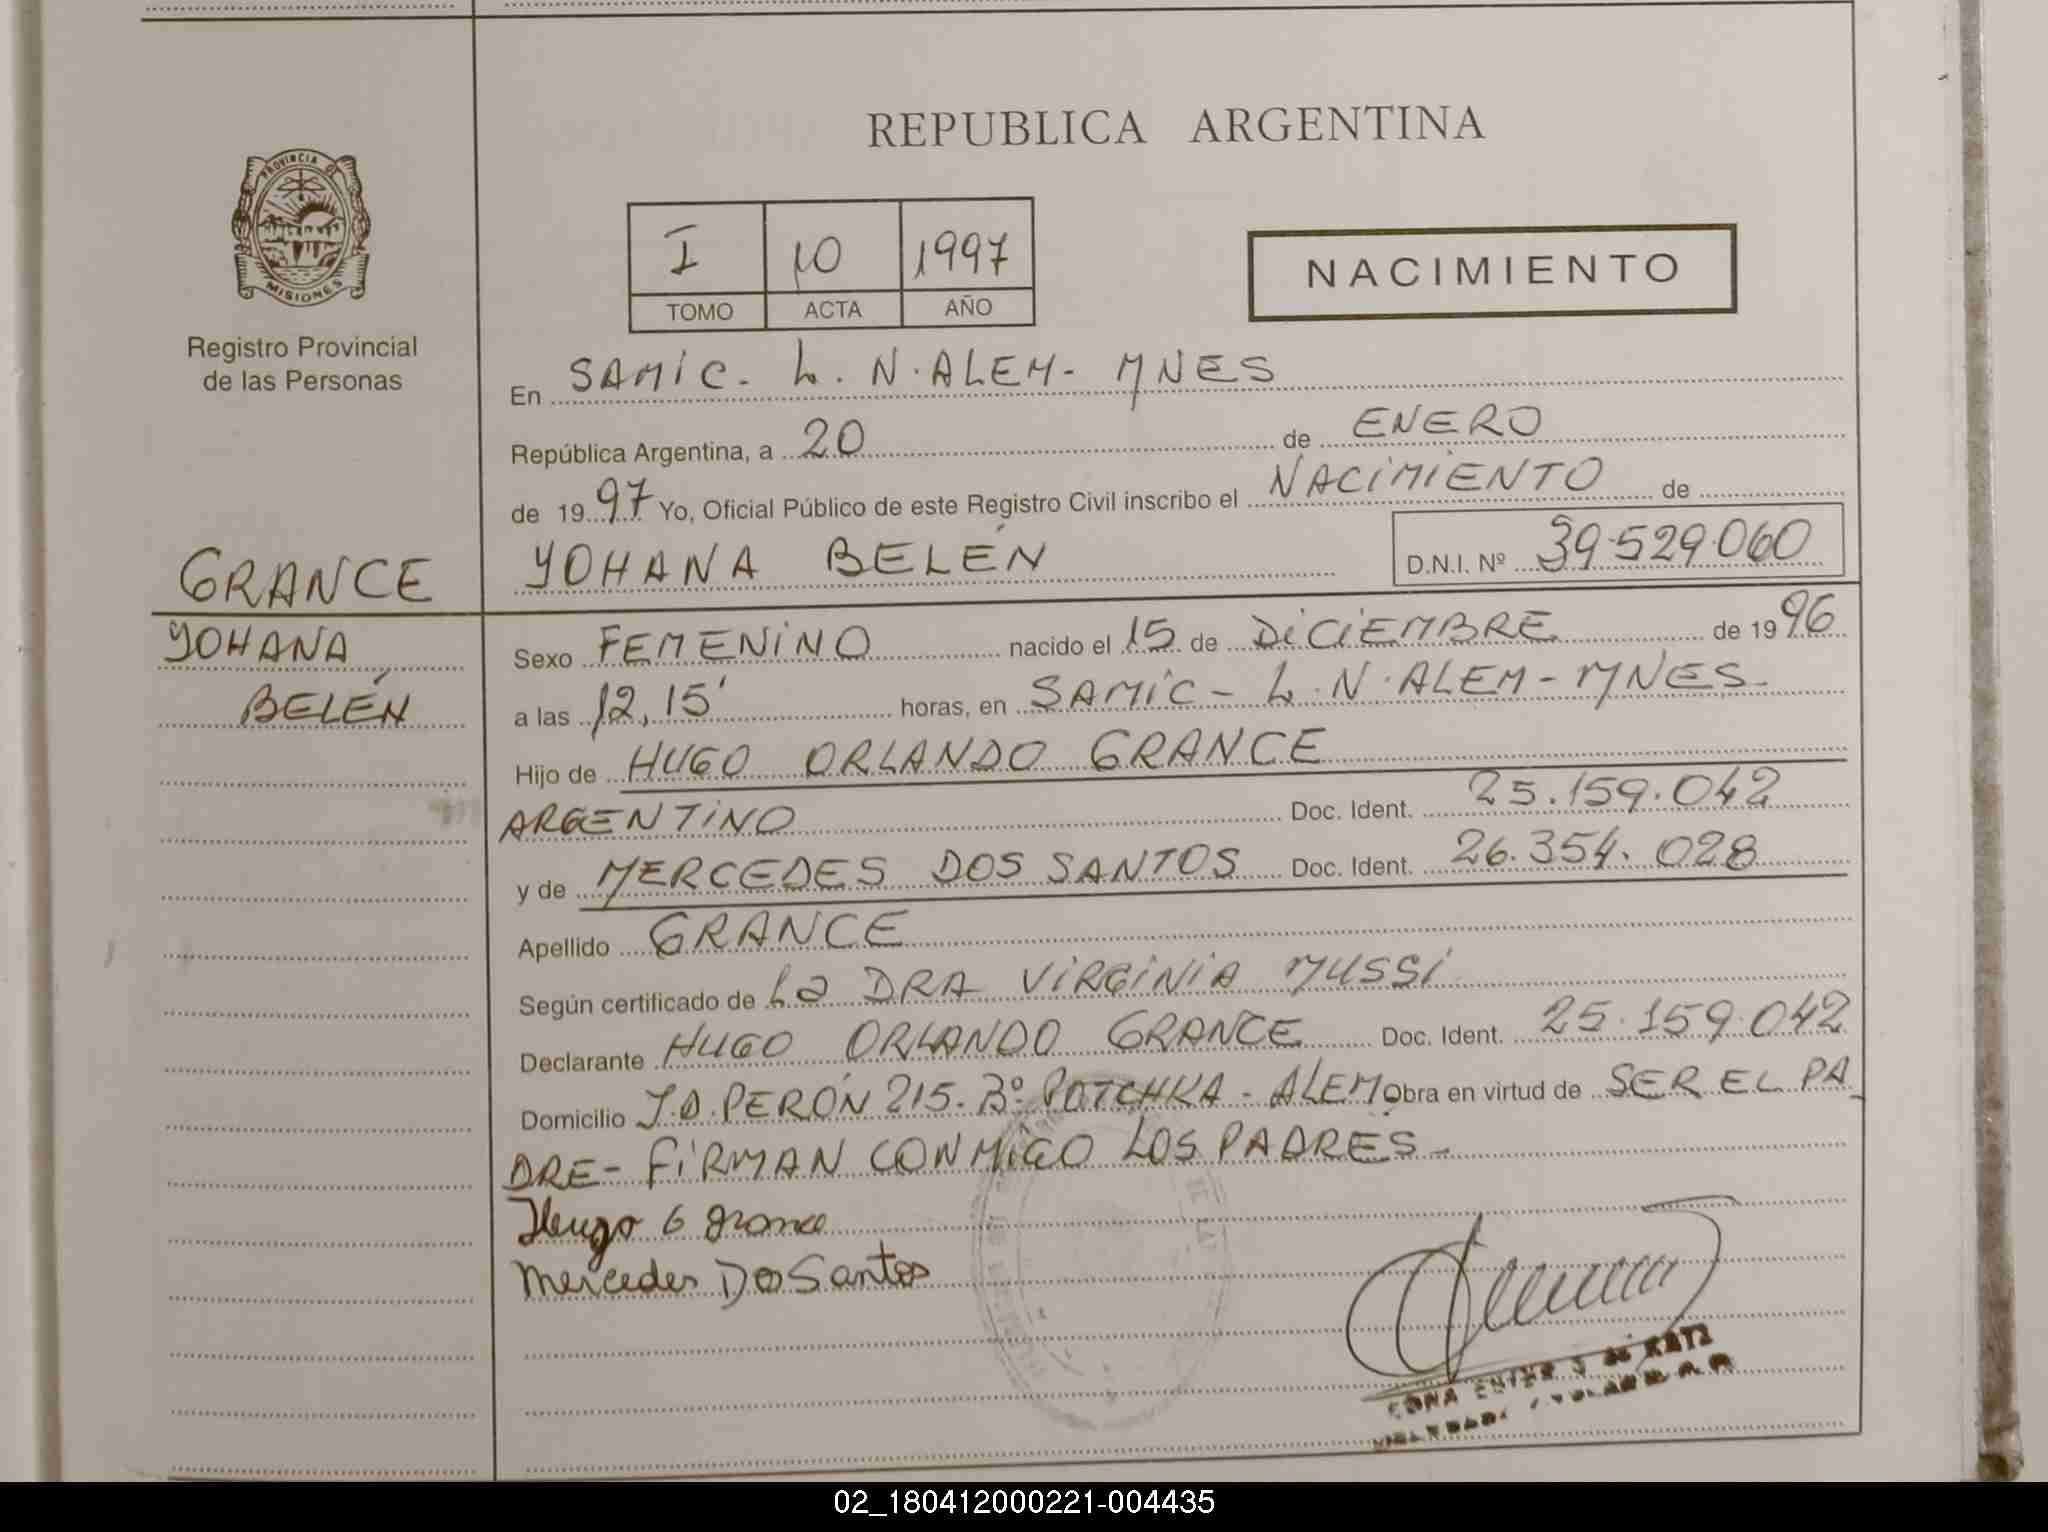 REPUBLICA ARGENTINA
PROVINCIA DE
MISIONES
Registro Provincial
de las Personas
I 10 1997
TOMO ACTA AÑO
NACIMIENTO
En SAMIC - L. N. ALEM - MNES
República Argentina, a 20 de ENERO
de 1997 Yo, Oficial Público de este Registro Civil inscribo el NACIMIENTO de
GRANCE
YOHANA BELÉN D.N.I. Nº 39.529.060
YOHANA
BELÉN
Sexo FEMENINO nacido el 15 de DICIEMBRE de 1996
a las 12,15' horas, en SAMIC - L. N. ALEM - MNES -
Hijo de HUGO ORLANDO GRANCE
ARGENTINO Doc. Ident. 25.159.042
y de MERCEDES DOS SANTOS Doc. Ident. 26.354.028
Apellido GRANCE
Según certificado de La DRA VIRGINIA MUSSI
Declarante HUGO ORLANDO GRANCE Doc. Ident. 25.159.042
Domicilio J.D. PERÓN 215. Bº POTCHKA - ALEM Obra en virtud de SER EL PA_
DRE - FIRMAN CONMIGO LOS PADRES -
Hugo O grance
Mercedes Dos Santos
02_180412000221-004435